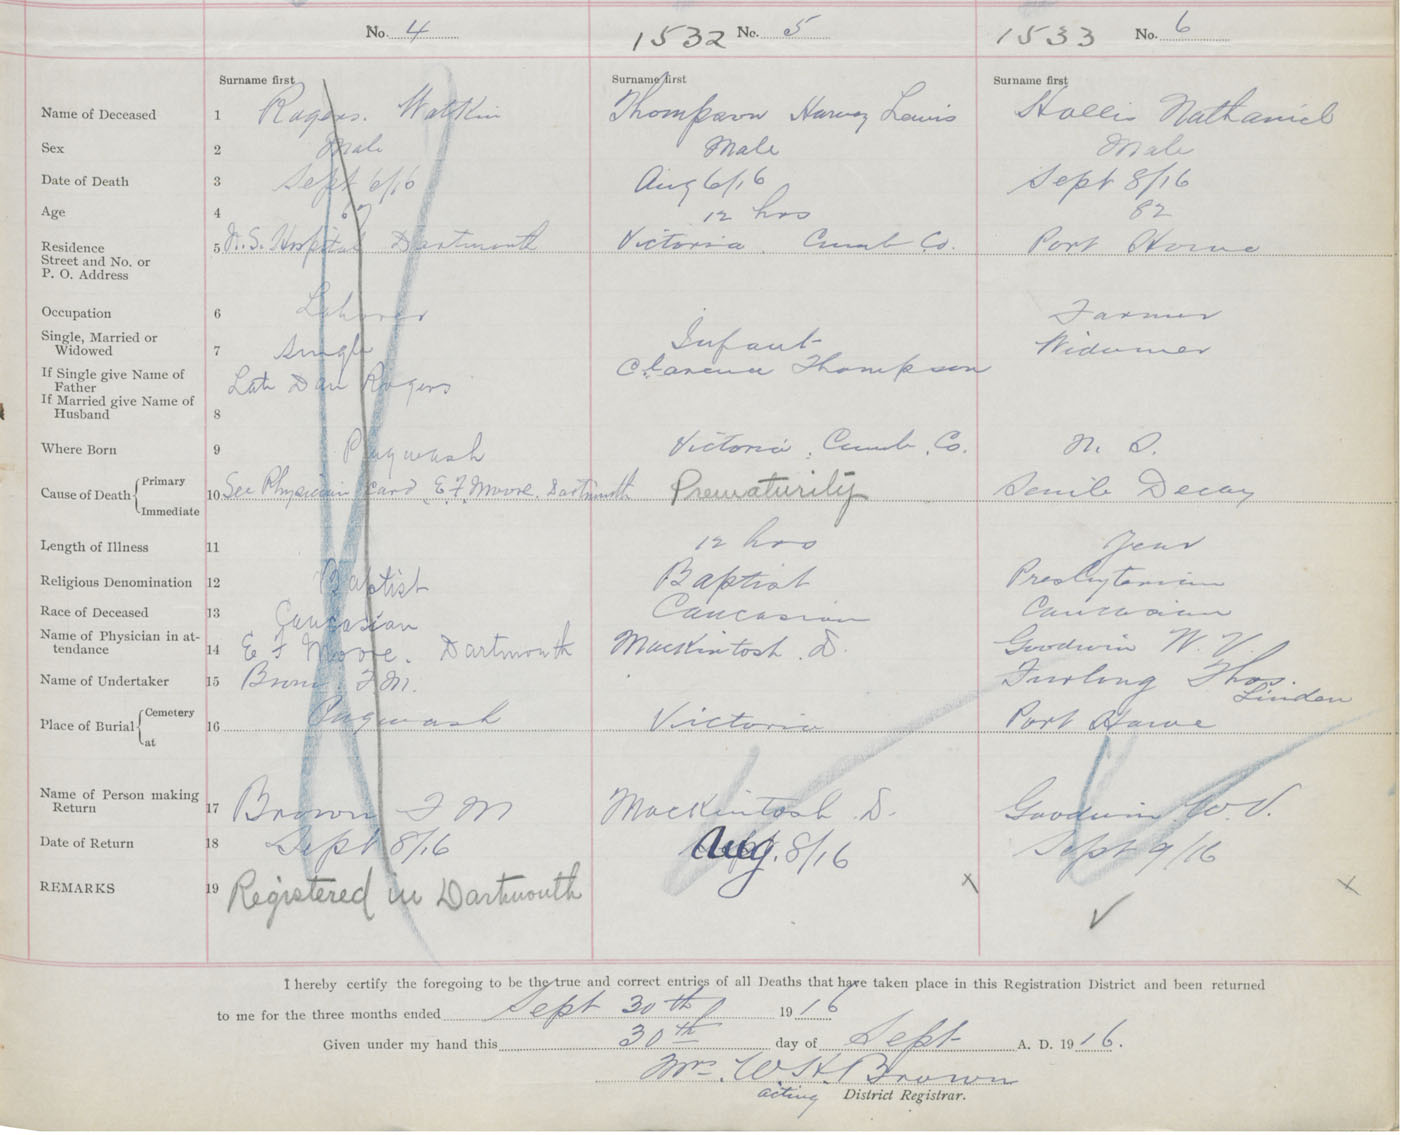 No. 4 1532 No. 5 1533 No. 6
Surname first Surname first Surname first
Name of Deceased 1 Rogers. Watkin Thompson Harvey Lewis Hollis Nathaniel
Sex 2 Male Male Male
Date of Death 3 Sept 6/16 Aug 6/16 Sept 8/16
Age 4 12 hrs 82
Residence
Street and No. or
P. O. Address
5 N.S. Hospital Dartmouth Victoria Cumb Co. Port Howe
Occupation 6 Laborer Farmer
Single, Married or
Widowed 7 Single Infant Widower
If Single give Name of
Father Late Dan Rogers Clarence Thompson
If Married give Name of
Husband 8
Where Born 9 Pugwash Victoria, Cumb. Co. N. S.
Cause of Death { Primary
Immediate
10 See Physician Card E. F. Moore. Dartmouth Prematurity Senile Decay
Length of Illness 11 12 hrs Year
Religious Denomination 12 Baptist Baptist Presbyterian
Race of Deceased 13 Caucasian Caucasian Caucasian
Name of Physician in at-
tendance 14 E F Moore. Dartmouth Mackintosh. D. Goodwin W. V.
Name of Undertaker 15 Brown F M. Furlong Thos.
Linden
Place of Burial { Cemetery
at
16 Pugwash Victoria Port Howe
Name of Person making
Return 17 Brown F M Mackintosh. D. Goodwin. W. V.
Date of Return 18 Sept 8/16 Aug. 8/16 Sept 9/16
REMARKS 19 Registered in Dartmouth
I hereby certify the foregoing to be the true and correct entries of all Deaths that have taken place in this Registration District and been returned
to me for the three months ended Sept 30th 1916
Given under my hand this 30th day of Sept A. D. 1916.
Mrs. W. H. Brown
acting District Registrar.